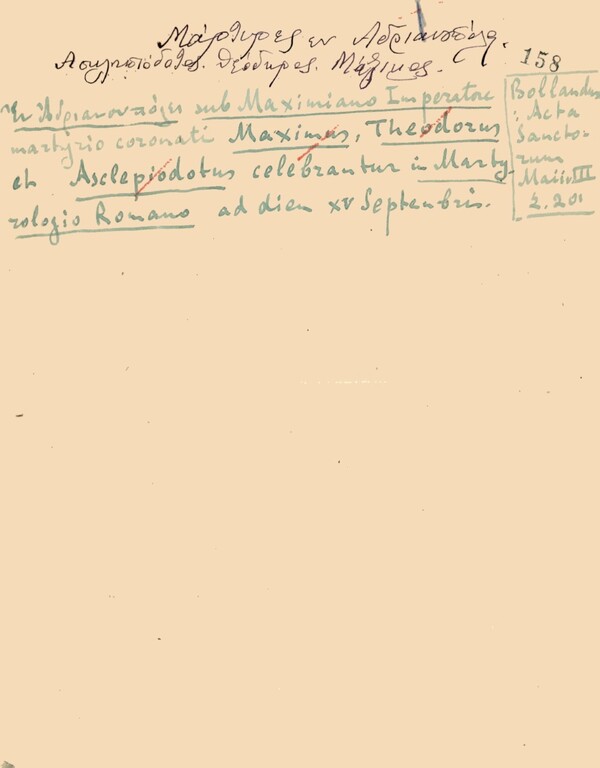 Μάρτυρες εν Αδριανουπόλει.
Ασκληπιόδοτος. Θεόδωρος. Μάξιμος.
158
Ἐν Ἀδριανουπόλει sub Maximiano Imperatore
martyrio coronati Maximus, Theodorus
et Asclepiodotus celebrantur in Marty-
rologio Romano ad diem XV Septembris.
Bollandus
Acta
Sancto-
rum
Maii III
201